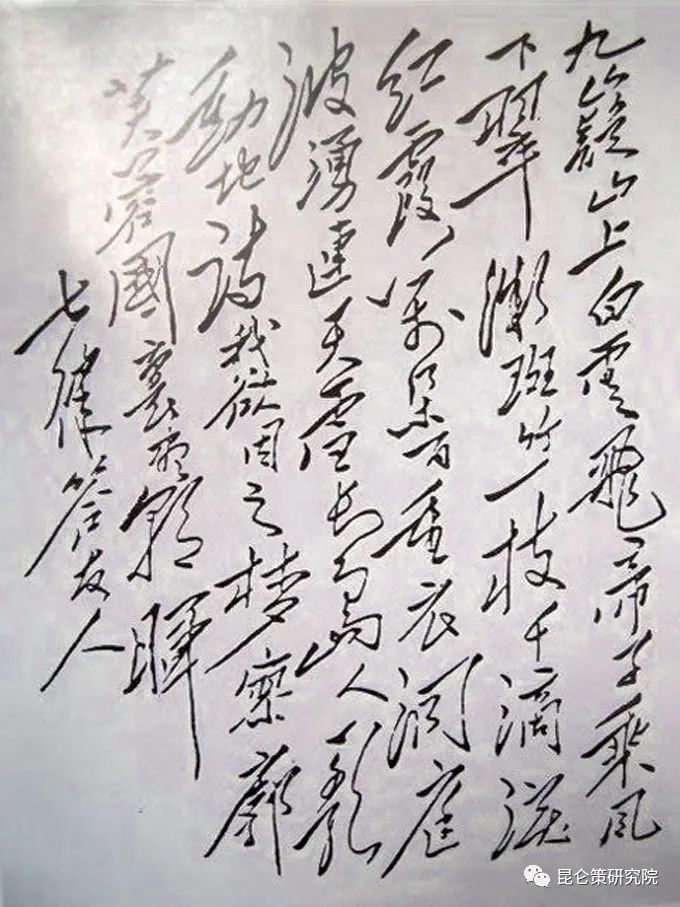 九嶷山上白雲飛帝子乘風
下翠微斑竹一枝千滴淚
紅霞萬朵百重衣洞庭
波湧連天雪長島人歌
動地詩我欲因之夢寥廓
芙蓉國裏盡朝暉
七律答友人
昆仑策研究院